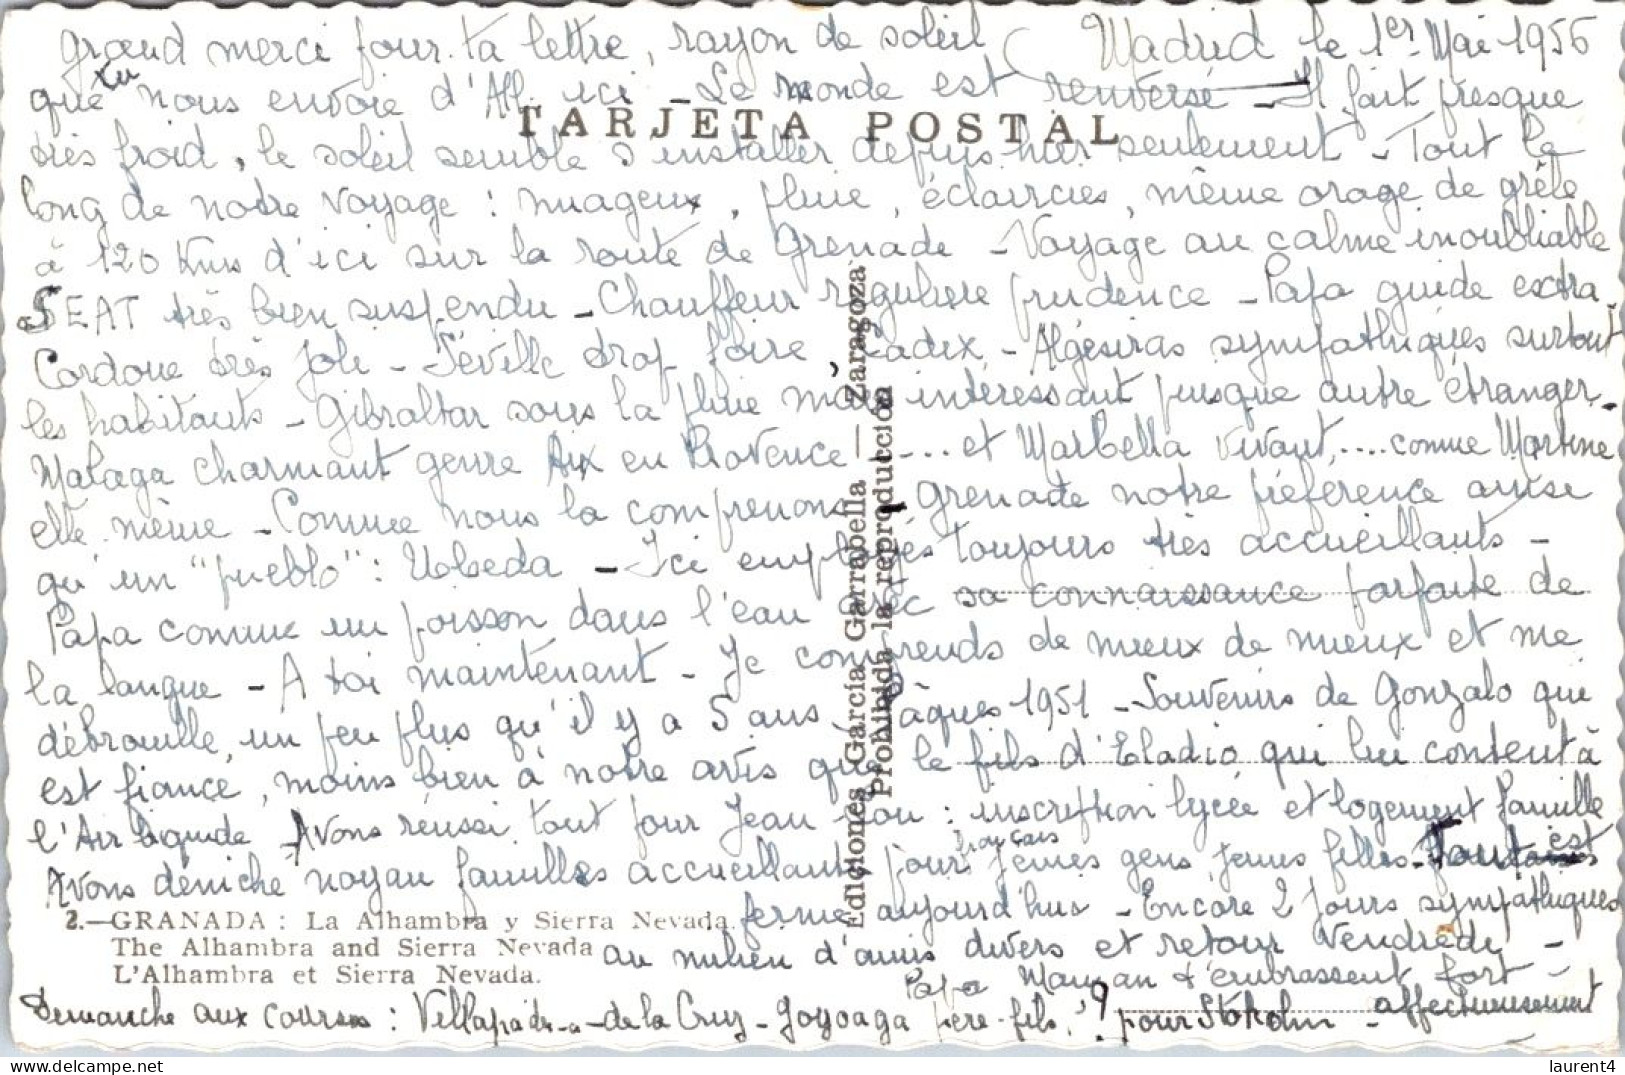 Madrid le 1er Mai 1956
Grand merci pour ta lettre, rayon de soleil
que tu nous envoie d'All. ici - Le monde est renversé - Il fait presque
TARJETA POSTAL
très froid, le soleil semble s'installer depuis hier seulement - Tout le
long de notre voyage : nuageux, pluie, éclaircies, même orage de grêle
à 120 Kms d'ici sur la route de Grenade - Voyage au calme inoubliable
SEAT très bien suspendu - Chauffeur régulière prudence - Papa guide extra.
Cordoue très joli - Séville trop foire, Cadix - Algésiras sympathiques surtout
les habitants - Gibraltar sous la pluie mais intéressant puisque autre étranger.
Malaga charmant genre Aix en Provence - ... et Marbella vivant, .... comme Martine
elle même - Comme nous la comprenons. Grenade notre préférence ainsi
qu'un "pueblo" : Ubeda - Ici employés toujours très accueillants -
Papa comme un poisson dans l'eau avec sa connaissance parfaite de
la langue - A toi maintenant - Je comprends de mieux de mieux et me
débrouille, un peu plus qu'il y a 5 ans. Pâques 1951 - Souvenirs de Gonzalo qui
est fiancé, moins bien à notre avis que le fils d'Eladio qui lui content à
l'Air liquide. Avons réussi tout pour Jean Lou : inscription lycée et logement famille
Avons déniché noyau familles accueillants pour jeunes français gens jeunes filles - Tout est
fermé aujourd'hui - Encore 2 jours sympathiques
au milieu d'amis divers et retour Vendredi -
Papa Maman t'embrassent fort -
affectueusement
2.—GRANADA : La Alhambra y Sierra Nevada.
The Alhambra and Sierra Nevada
L'Alhambra et Sierra Nevada.
Demanche aux courses : Villapadierna - de la Cruz - Goyoaga père-fils, ? pour Stokolm -
Ediciones García Garrabella — Zaragoza
Prohibida la reproducción
laurent4